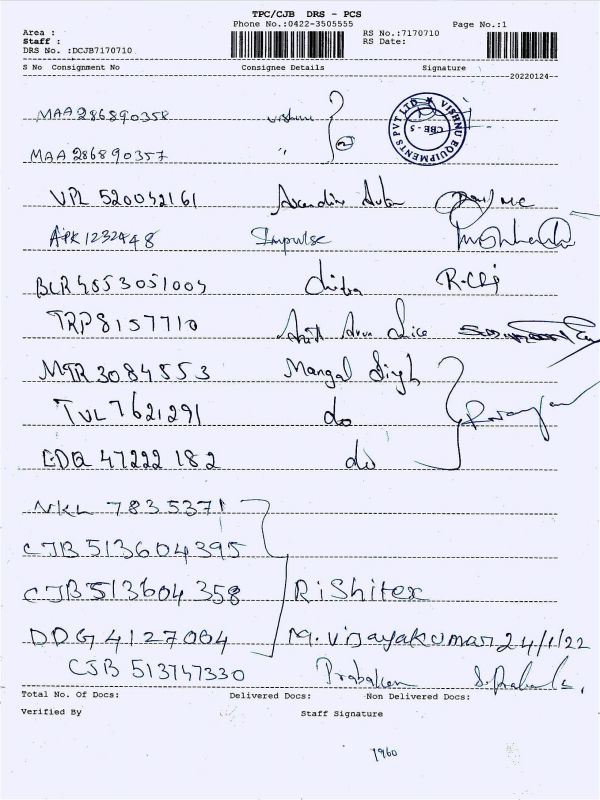 TPC/CJB DRS - PCS
Phone No.:0422-3505555
Page No.:1
Area :
RS No.:7170710
Staff :
RS Date:
DRS No. :DCJB7170710
S No Consignment No Consignee Details Signature
20220124
MAA 286890358 vishnu
VISHNU EQUIPMENTS PVT LTD ★ CBE - 5
MAA 286890357 "
VPL 520042161
APK 1232448 Impulse
BLR 4553051009 chitra R.
TRP 8157710
MTR 3084553 Mangal Singh
TVL 7621291 do
DDQ 47222 182 do
NKL 7835371
CJB 513604395
CJB 513604358 Rishitex
DDG 4127004 M. Vijayakumar 24/1/22
CJB 513747330 Prabakan
Total No. Of Docs: Delivered Docs: Non Delivered Docs:
Verified By Staff Signature
1960